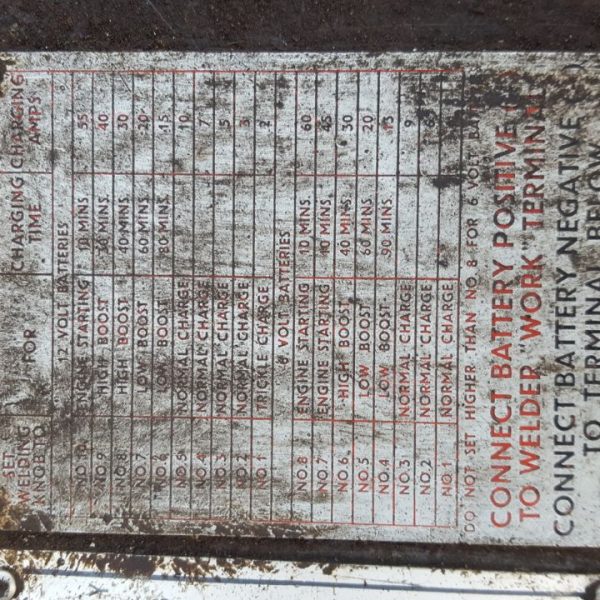 SET WELDING KNOB TO FOR CHARGING TIME CHARGING AMPS
12 VOLT BATTERIES
NO.10 ENGINE STARTING 10 MINS. 55
NO.9 HIGH BOOST MINS. 40
NO.8 HIGH BOOST 40 MINS. 30
NO.7 LOW BOOST 60 MINS. 20
NO.6 LOW BOOST 80 MINS. 15
NO.5 NORMAL CHARGE 10
NO.4 NORMAL CHARGE 7
NO.3 NORMAL CHARGE 5
NO.2 NORMAL CHARGE 3
NO.1 TRICKLE CHARGE 2
6 VOLT BATTERIES
NO.8 ENGINE STARTING 10 MINS. 60
NO.7 ENGINE STARTING 10 MINS. 45
NO.6 HIGH BOOST 40 MINS. 30
NO.5 LOW BOOST 60 MINS. 20
NO.4 LOW BOOST 90 MINS. 13
NO.3 NORMAL CHARGE 9
NO.2 NORMAL CHARGE
NO.1 NORMAL CHARGE
DO NOT SET HIGHER THAN NO. 8 FOR 6 VOLT
CONNECT BATTERY POSITIVE
TO WELDER "WORK" TERMINAL
CONNECT BATTERY NEGATIVE
TO TERMINAL BELOW